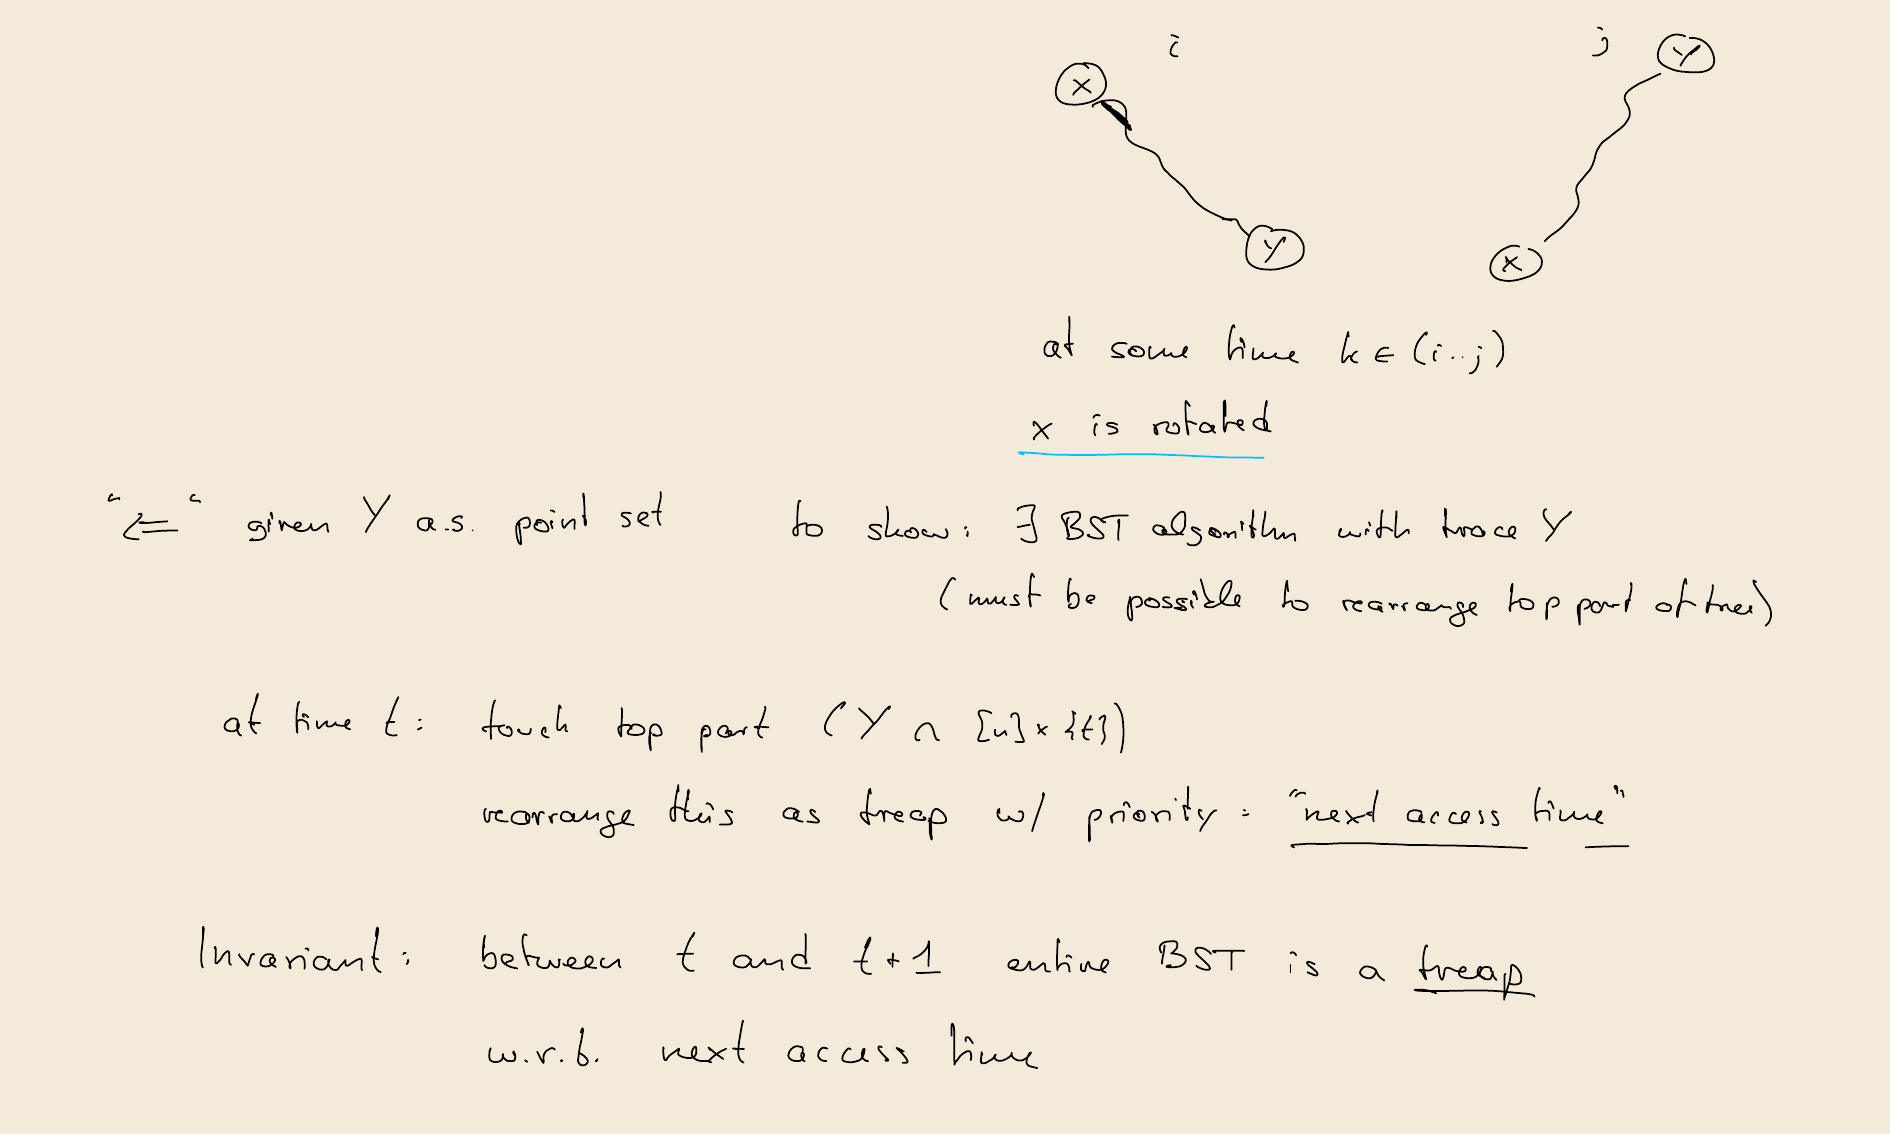 i j
x y
y x
at some time k ∈ (i..j)
x is rotated
"⇐" given Y a.s. point set to show: ∃ BST algorithm with trace Y
(must be possible to rearrange top part of tree)
at time t: touch top part (Y ∩ [n] × {t})
rearrange this as treap w/ priority = "next access time"
Invariant: between t and t+1 entire BST is a treap
w.r.t. next access time